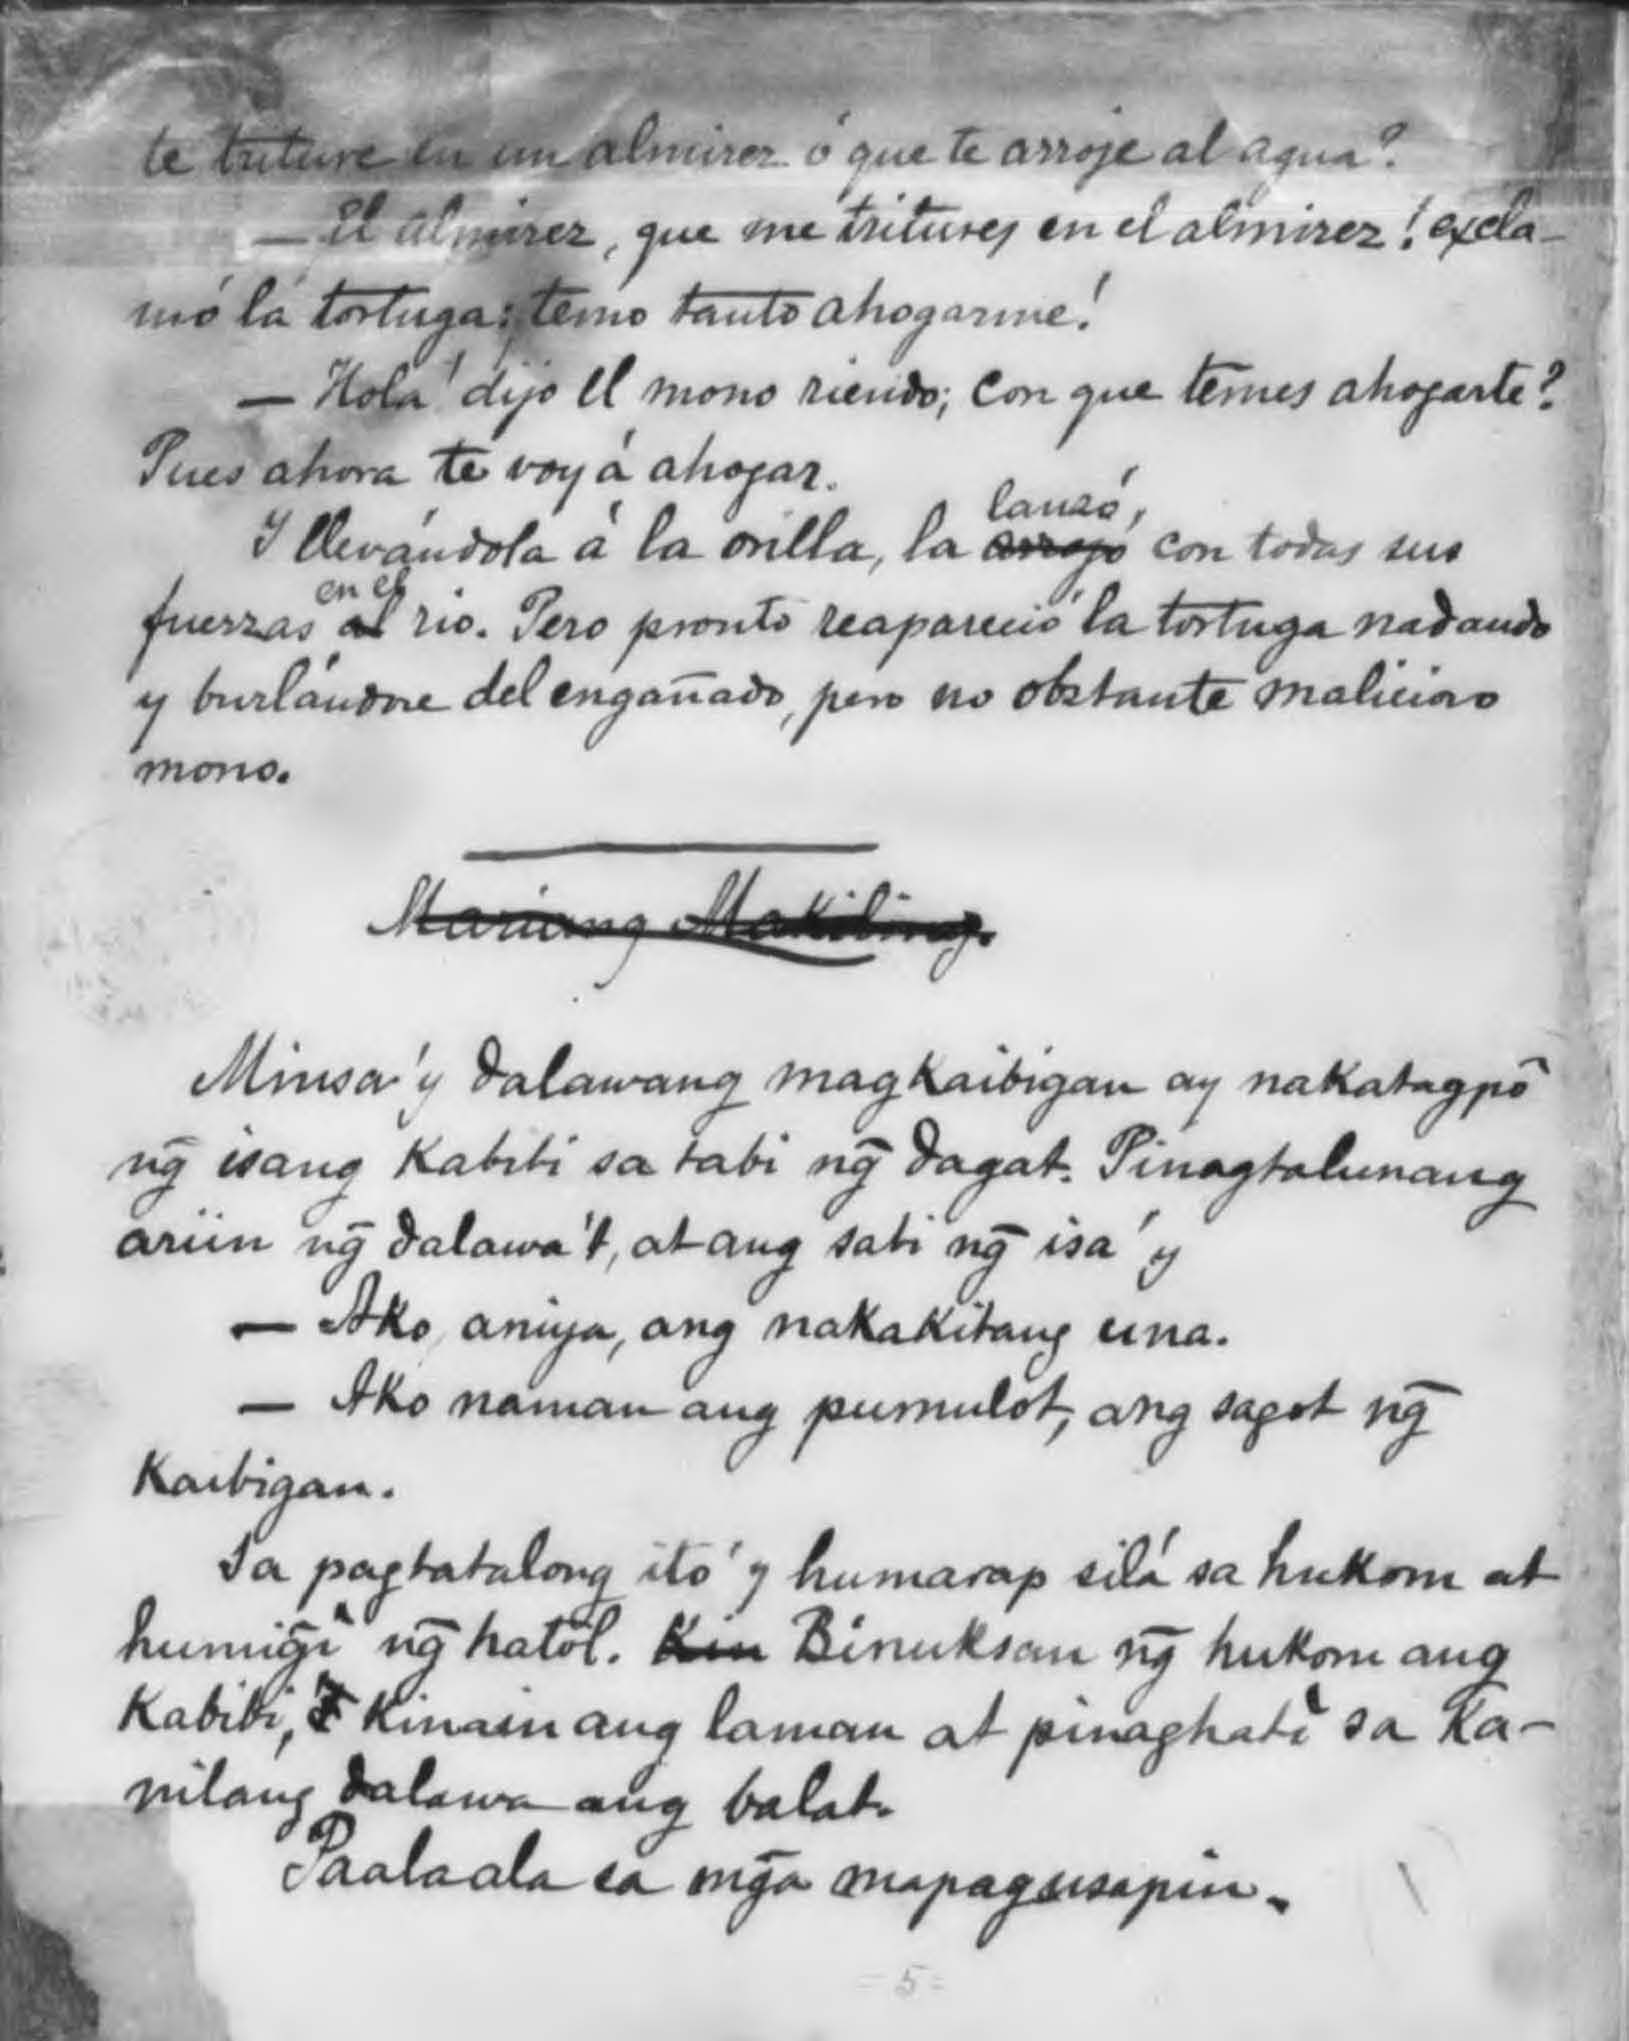 te triture en un almirez ó que te arroje al agua?
— El almirez, que me tritures en el almirez! excla-
mó la tortuga; temo tanto ahogarme!
— Hola! dijo el mono riendo; con que temes ahogarte?
Pues ahora te voy á ahogar.
Y llevándola á la orilla, la arrojó lanzó, con todas sus
fuerzas al en el rio. Pero pronto reapareció la tortuga nadando
y burlándose del engañado, pero no obstante malicioso
mono.
Mariang Makiling.
Minsa'y dalawang magkaibigan ay nakatagpô
ng̃ isang kabibi sa tabi ng̃ dagat. Pinagtalunang
ariin ng̃ dalawa't, at ang sabi ng̃ isa'y
— Ako, aniya, ang nakakitang una.
— Ako naman ang pumulot, ang sagot ng̃
kaibigan.
Sa pagtatalong ito'y humarap silá sa hukom at
humig̃î ng̃ hatol. Kin Binuksan ng̃ hukom ang
kabibi, kinain ang laman at pinaghatì sa ka-
nilang dalawa ang balat.
Paalaala sa mg̃a mapagusapin.
- 5 -